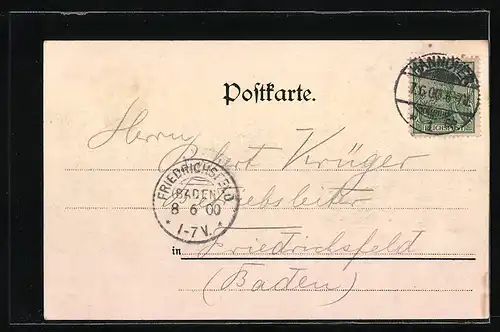 HANNOVER
7.6.00.
Postkarte.
Herrn
Robert Krüger
Betriebsleiter
FRIEDRICHSFELD
(BADEN)
8 6 00
* 1-7V. *
in Friedrichsfeld
(Baden)